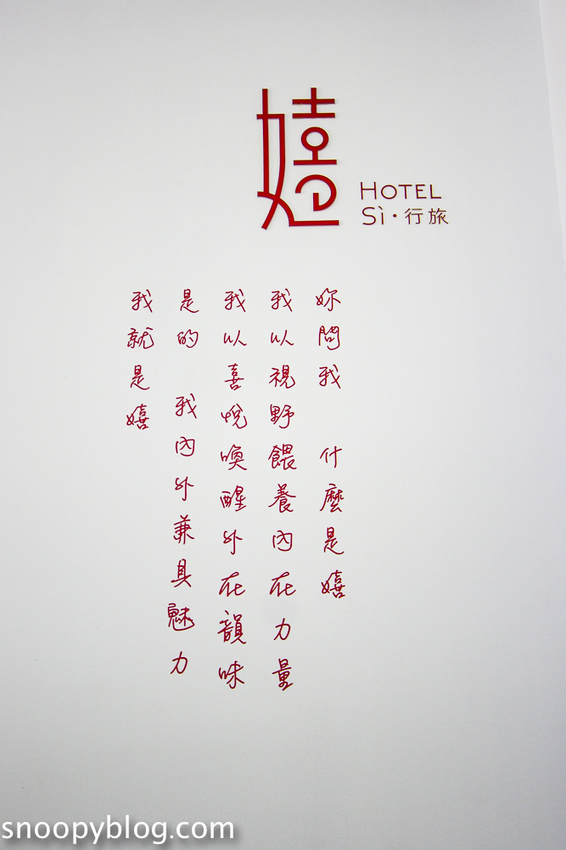 嬉
HOTEL
Sì·行旅
妳問我 什麼是嬉
我以視野餵養內在力量
我以喜悅喚醒外在韻味
是的 我內外兼具魅力
我就是嬉
snoopyblog.com